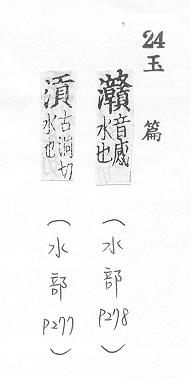 24 玉篇
灨 音感 水也 (水部 P278)
古洞切 水也 (水部 P277)